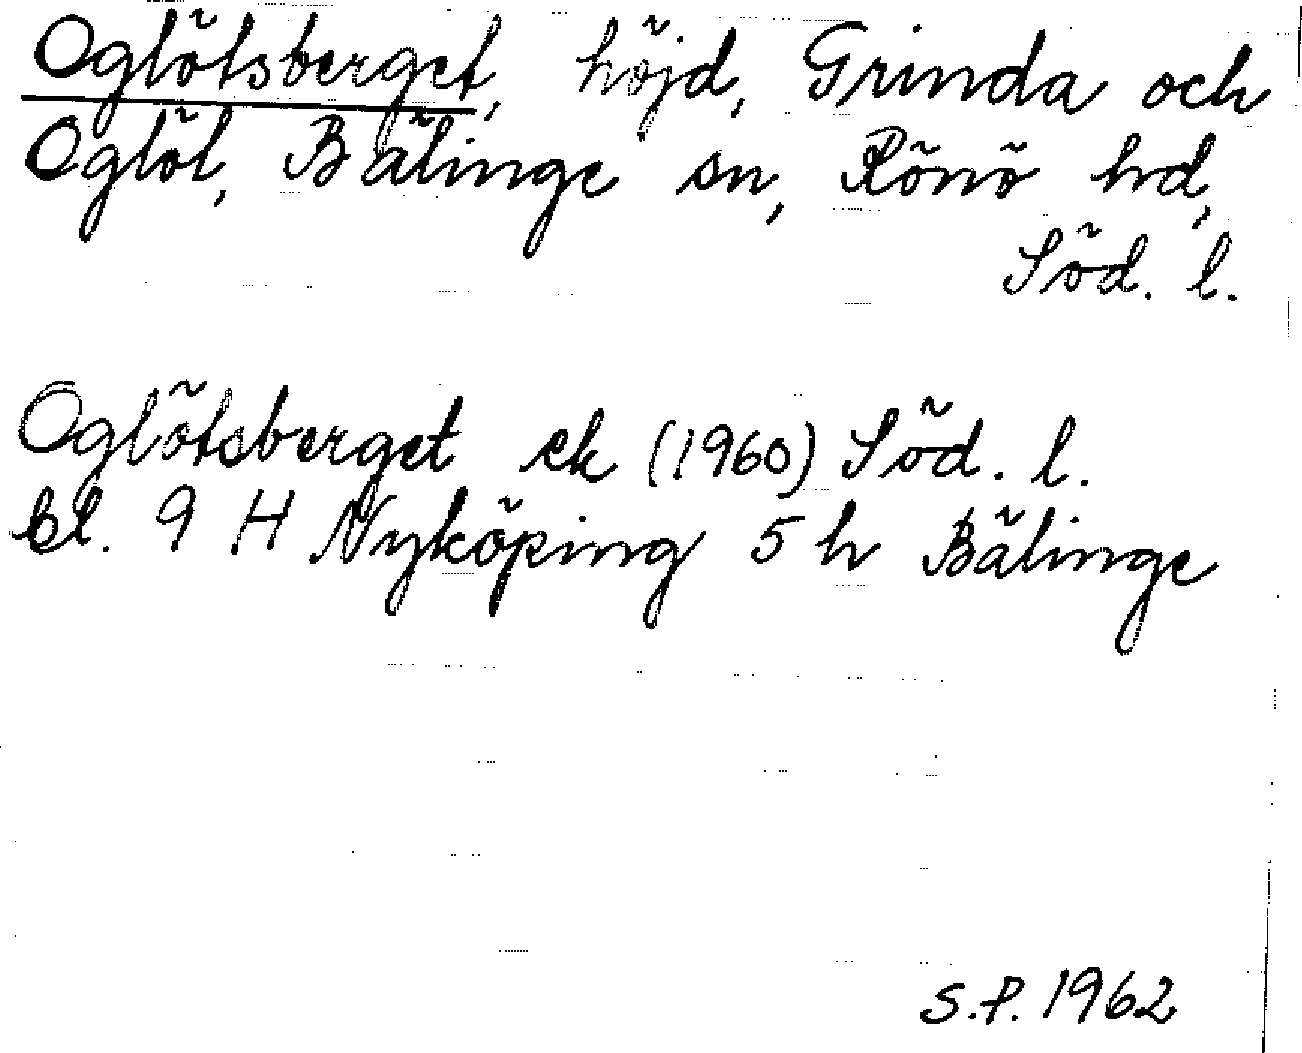 Oglötsberget, höjd, Grinda och
Oglöt, Bälinge sn, Rönö hd,
Söd. l.
Oglötsberget ek (1960) Söd. l.
bl. 9 H Nyköping 5 h Bälinge
S.P. 1962